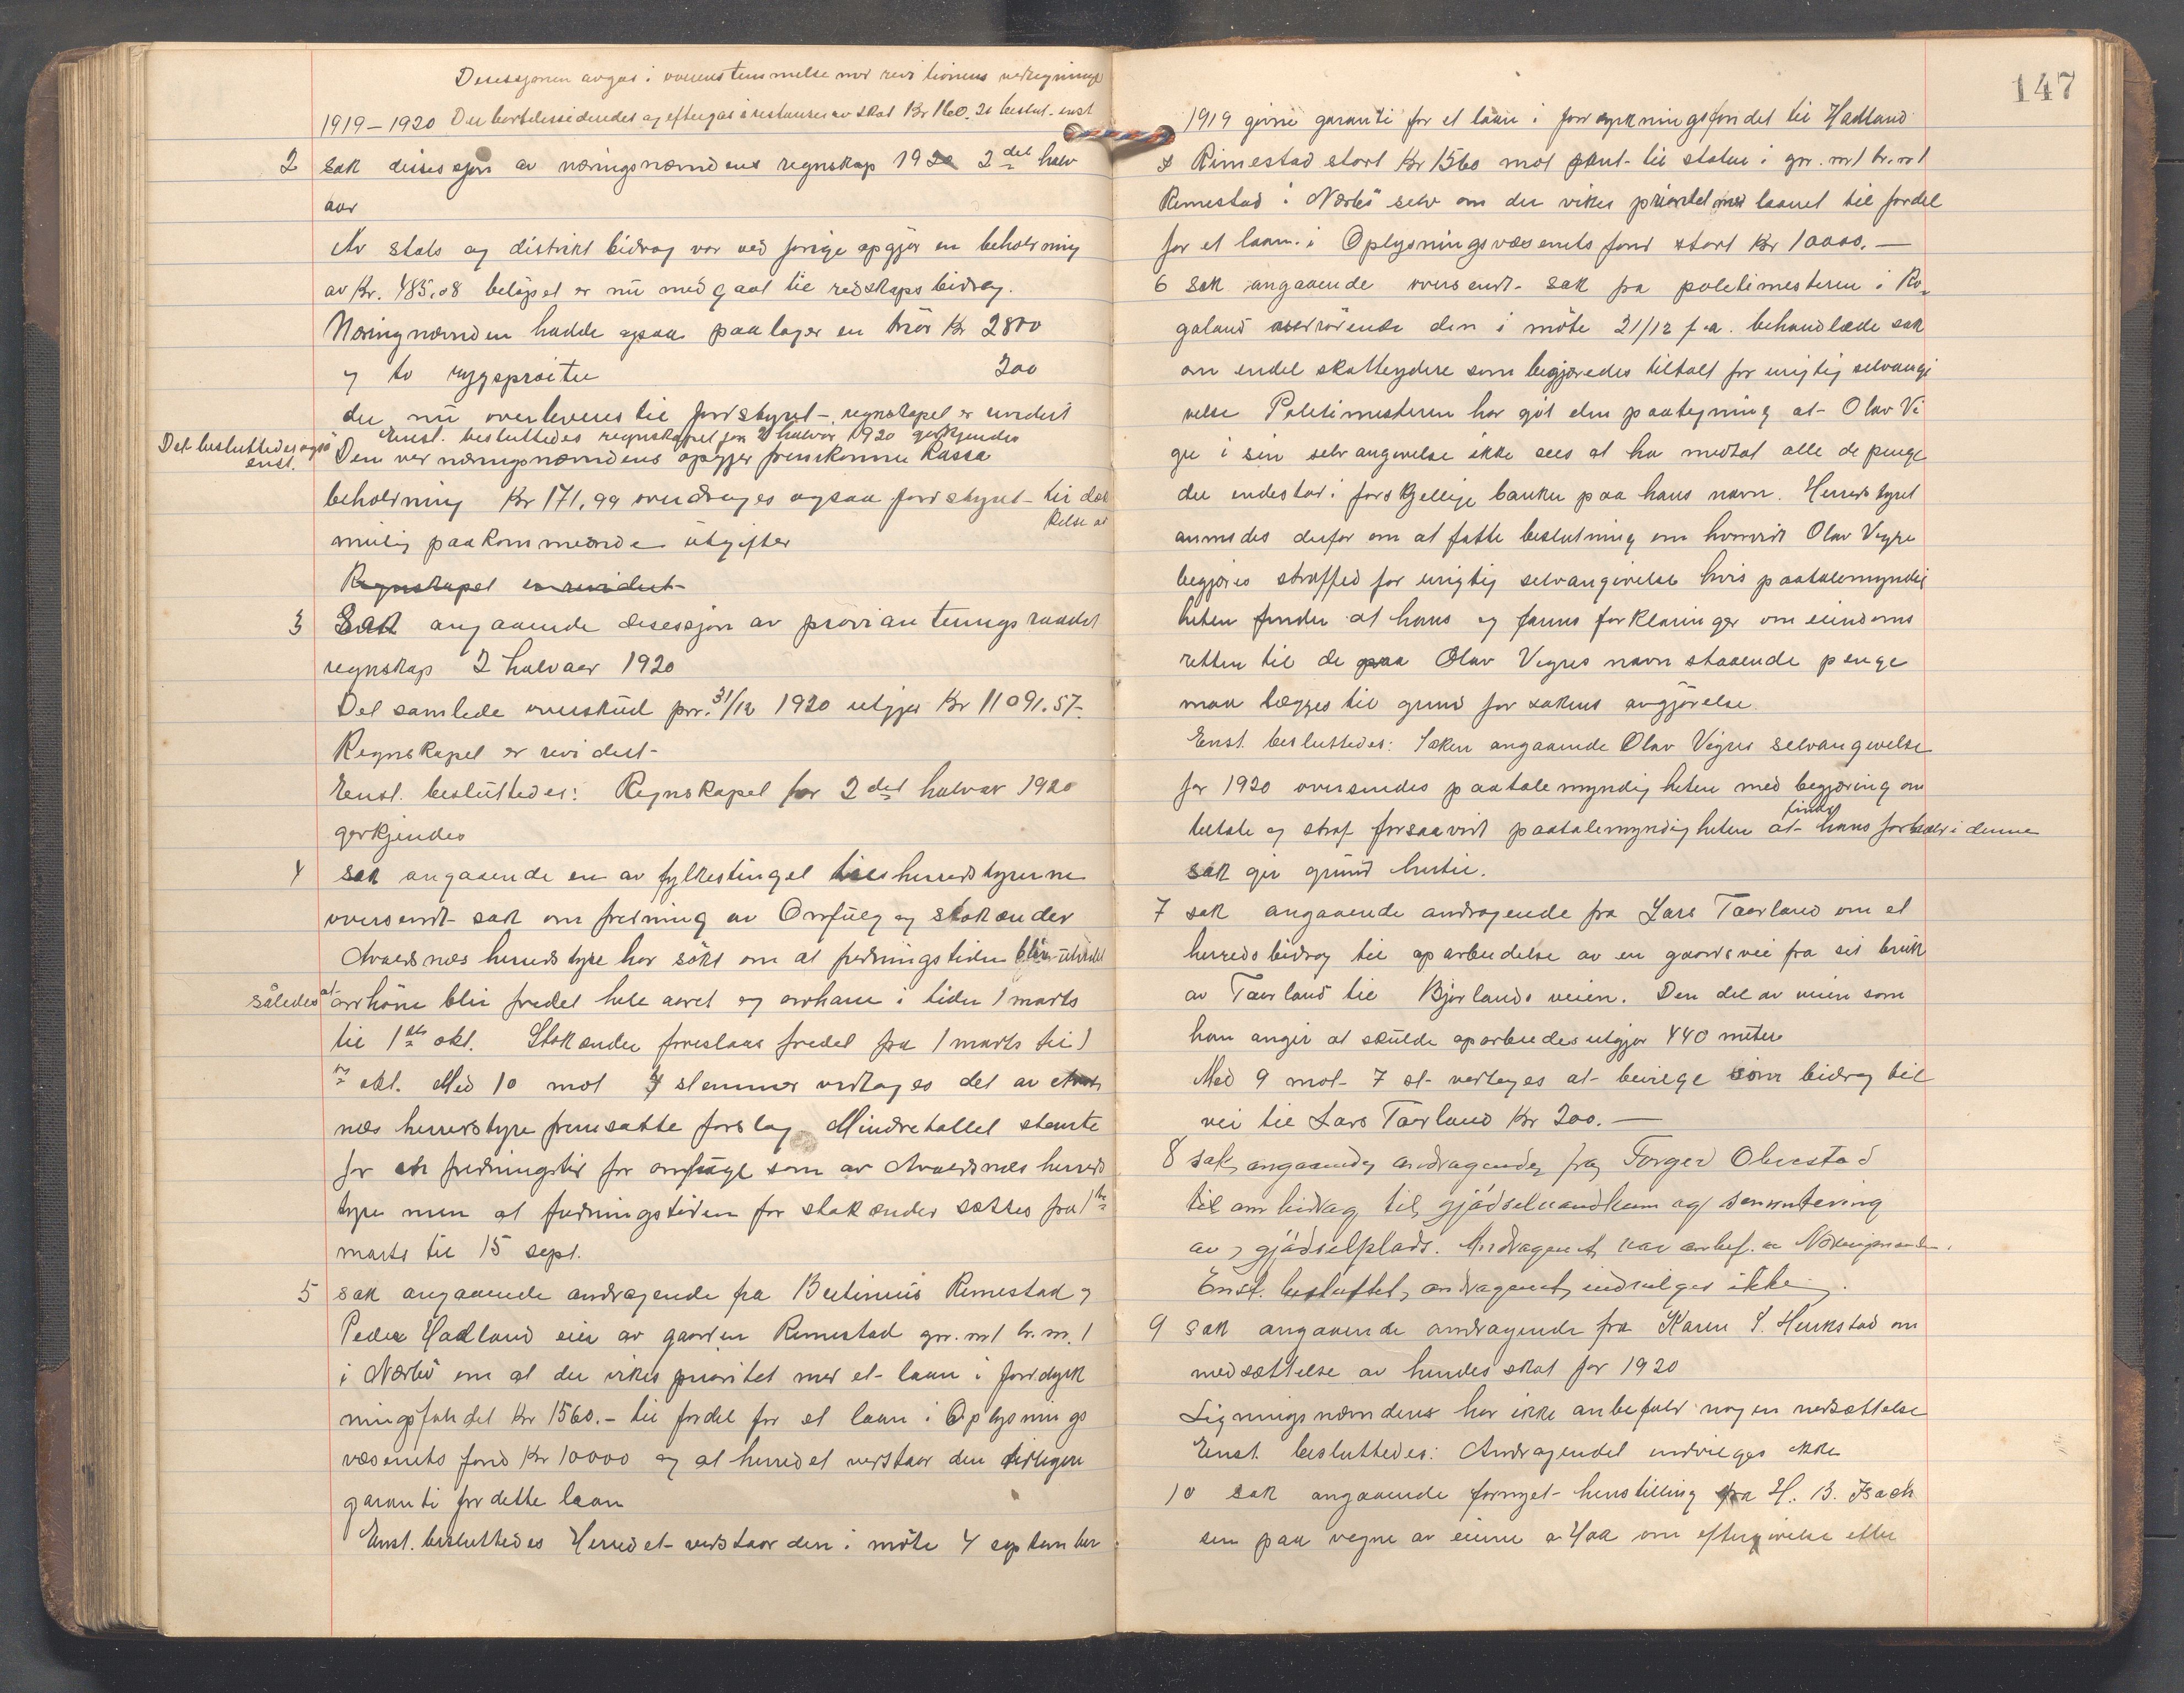 Desessjonen avgas i overenstemmelse med revitionens
1919–1920 De bortdessiderades og eftergas i restanser av skat Kr 160.20 beslut. enst
2 sak desisesjon av næringsnæmdens regnskap 1920 2det halv
aar
Av stats og distrikt bidrag var ved forige opgjør en beholdning
av Kr. 485,08 beløpet er nu medgaat til redskapsbidrag.
Næringnæmden hadde ogsaa paa lager en trior Kr 2800
og to rygsprøiter 200
der nu overleveres til jordstyret – regnskapet er revidert
Enst. besluttedes regnskapet for 2 halvår 1920 godkjendes
Det besluttedes også
enst.
Den ver næringsnæmdens opgjør fremkomne Kassa
beholdning Kr 171,99 overdrages ogsaa jordstyret – til dæk
kelse av
mulig paakommende utgifter
Regnskapet er revidert
3 Sak angaaende desessjon av provianteringsraadet
regnskap 2 halvaar 1920
Det samlede overskud pr. 31/12 1920 utgjør Kr 11091.57.
Regnskapet er revidert –
Enst. besluttedes: Regnskapet for 2det halvår 1920
godkjendes
4 sak angaaende en av fylkestinget til herredstyrerne
oversendt sak om fredning av Orrfugl og stokænder
Avaldsnes herredstyre har søkt om at fredningstiden blir utvidet
således at orrhøne blir fredet hele aaret og orrhane i tiden 1 marts
til 1ste okt. Stokænder foreslaas fredet fra 1 marts til 1
ste okt. Med 10 mot 4 stemmer vedtages det av Avalds
næs herredstyre fremsatte forslag. Mindretallet stemte
for en fredningstid for orrfugl som av Avaldsnæs herreds
tyre men at fredningstiden for stokænder sættes fra 1ste
marts til 15 sept.
5 sak angaaende andragende fra Bertinius Rimestad og
Peder Hadland eier av gaarden Rimestad gnr. nr 1 br. nr. 1
i Nærbø om at der vikes prioritet med et laan i jorddyrk
ningsfondet Kr 1560.– til fordel for et laan i Oplysnings
væsenets fond Kr 10000 og at herredet vedstaar den tidligere
garanti for dette laan
Enst. besluttedes Herredet vedstaar den i møte 4 september
147
1919 givne garanti for et laan i jorddyrkningsfondet til Hadland
& Rimestad stort Kr 1560 mot pant til staten i gnr. nr 1 br. nr 1
Rimestad i Nærbø selv om der vikes prioritet med laanet til fordel
for et laan i Oplysningsvæsenets fond stort Kr 10000.—
6 Sak angaaende oversendt sak fra politimesteren i Ro-
galand vedrørende den i møte 21/12 f.a. behandlede sak
om endel skatteydere som begjæredes tiltalt for urigtig selvangi
velse Politimesteren har git den paategning at Olav Vi
gre i sin selvangivelse ikke sees at ha medtat alle de penge
der indestod i forskjellige banker paa hans navn. Herredstyret
anmodes derfor om at fatte beslutning om hvorvidt Olav Vigre
begjæres straffed for urigtig selvangivelse hvis paatalemyndig
heten finder at hans og farens forklaringer om eiendoms
retten til de paa Olav Vigres navn staaende penge
maa lægges til grund for sakens avgjørelse.
Enst. besluttedes: Saken angaaende Olav Vigres selvangivelse
for 1920 oversendes paatalemyndigheten med begjæring om
tiltale og straf forsaavidt paatalemyndigheten finder at hans forhold i denne
sak gir grund hertil.
7 sak angaaende andragende fra Lars Taarland om et
herredsbidrag til oparbeidelse av en gaardsvei fra sit bruk
av Taarland til Bjorlands veien. Den del av veien som
han angir at skulde oparbeides utgjør 440 meter
Med 9 mot 7 st. vedtoges at bevilge som bidrag til
vei til Lars Taarland Kr 200.—
8 Sak angaaende andragende fra Torger Oberstad
til om bidrag til gjødselvandkum og sementering
av gjødselplads. Andragenet var anbef. av Næringsnemden.
Enst. besluttet, andragenet indvilges ikke.
9 Sak angaaende andragende fra Karen S. Herikstad om
nedsættelse av hendes skat for 1920
Ligningsnæmdens har ikke anbefalt nogen nedsættelse
Enst. besluttedes: Andragendet indvilges ikke
10 sak angaaende fornyet henstilling fra H. B. Isach
sen paa vegne av eierne a Haa om eftergivelse eller